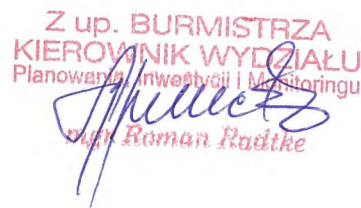 Z up. BURMISTRZA
KIEROWNIK WYDZIAŁU
Planowania, Inwestycji i Monitoringu
mgr Roman Radtke